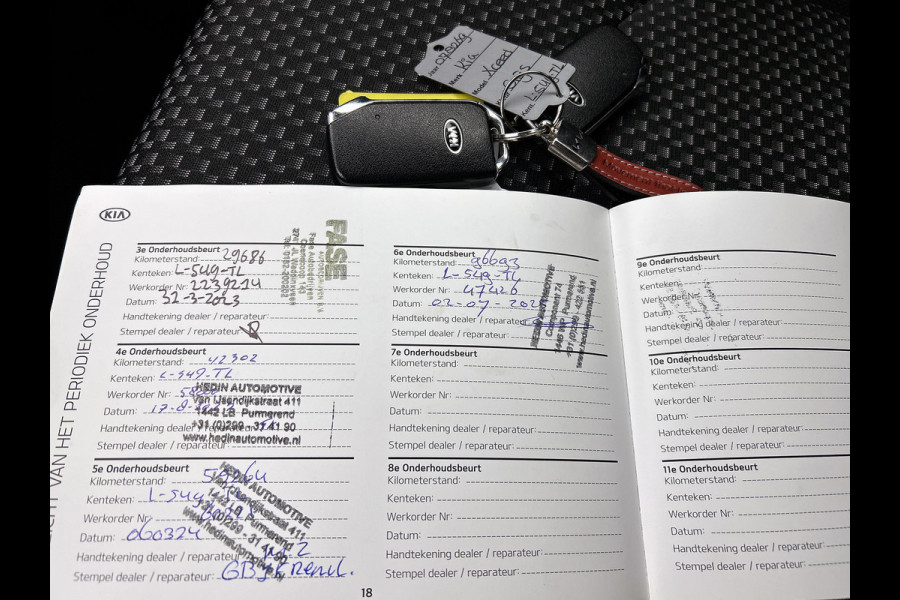 Kia
Xceed
L-549-TL
KIA
VAN HET PERIODIEK ONDERHOUD
3e Onderhoudsbeurt
Kilometerstand: 29686
Kenteken: L-549-TL
Werkorder Nr: 2239214
Datum: 32-3-2023
Handtekening dealer / reparateur:
Stempel dealer / reparateur:
FASE
4e Onderhoudsbeurt
Kilometerstand: 42302
Kenteken: L-549-TL
Werkorder Nr:
Datum: 17-8-
Handtekening dealer / reparateur:
Stempel dealer / reparateur:
HEDIN AUTOMOTIVE
Van IJsendijkstraat 411
1442 LB Purmerend
+31 (0)299 - 31 41 90
www.hedinautomotive.nl
5e Onderhoudsbeurt
Kilometerstand:
Kenteken: L-549
Werkorder Nr:
Datum: 060324
Handtekening dealer / reparateur
Stempel dealer / reparateur:
HEDIN AUTOMOTIVE
1442 LB Purmerend
+31 (0)299 - 31 41 90
www.hedinautomotive.nl
18
6e Onderhoudsbeurt
Kilometerstand:
Kenteken: L-549-TL
Werkorder Nr: 47426
Datum: 02-07-
Handtekening dealer / reparateur
Stempel dealer / reparateur:
HEDIN AUTOMOTIVE
Component 74
Purmerend
7e Onderhoudsbeurt
Kilometerstand:
Kenteken:
Werkorder Nr:
Datum:
Handtekening dealer / reparateur:
Stempel dealer / reparateur:
8e Onderhoudsbeurt
Kilometerstand:
Kenteken:
Werkorder Nr:
Datum:
Handtekening dealer / reparateur:
Stempel dealer / reparateur:
9e Onderhoudsbeurt
Kilometerstand:
Kenteken:
Werkorder Nr:
Datum:
Handtekening dealer / reparateur:
Stempel dealer / reparateur:
10e Onderhoudsbeurt
Kilometerstand:
Kenteken:
Werkorder Nr:
Datum:
Handtekening dealer / reparateur:
Stempel dealer / reparateur:
11e Onderhoudsbeurt
Kilometerstand:
Kenteken:
Werkorder Nr:
Datum:
Handtekening dealer / reparateur:
Stempel dealer / reparateur: